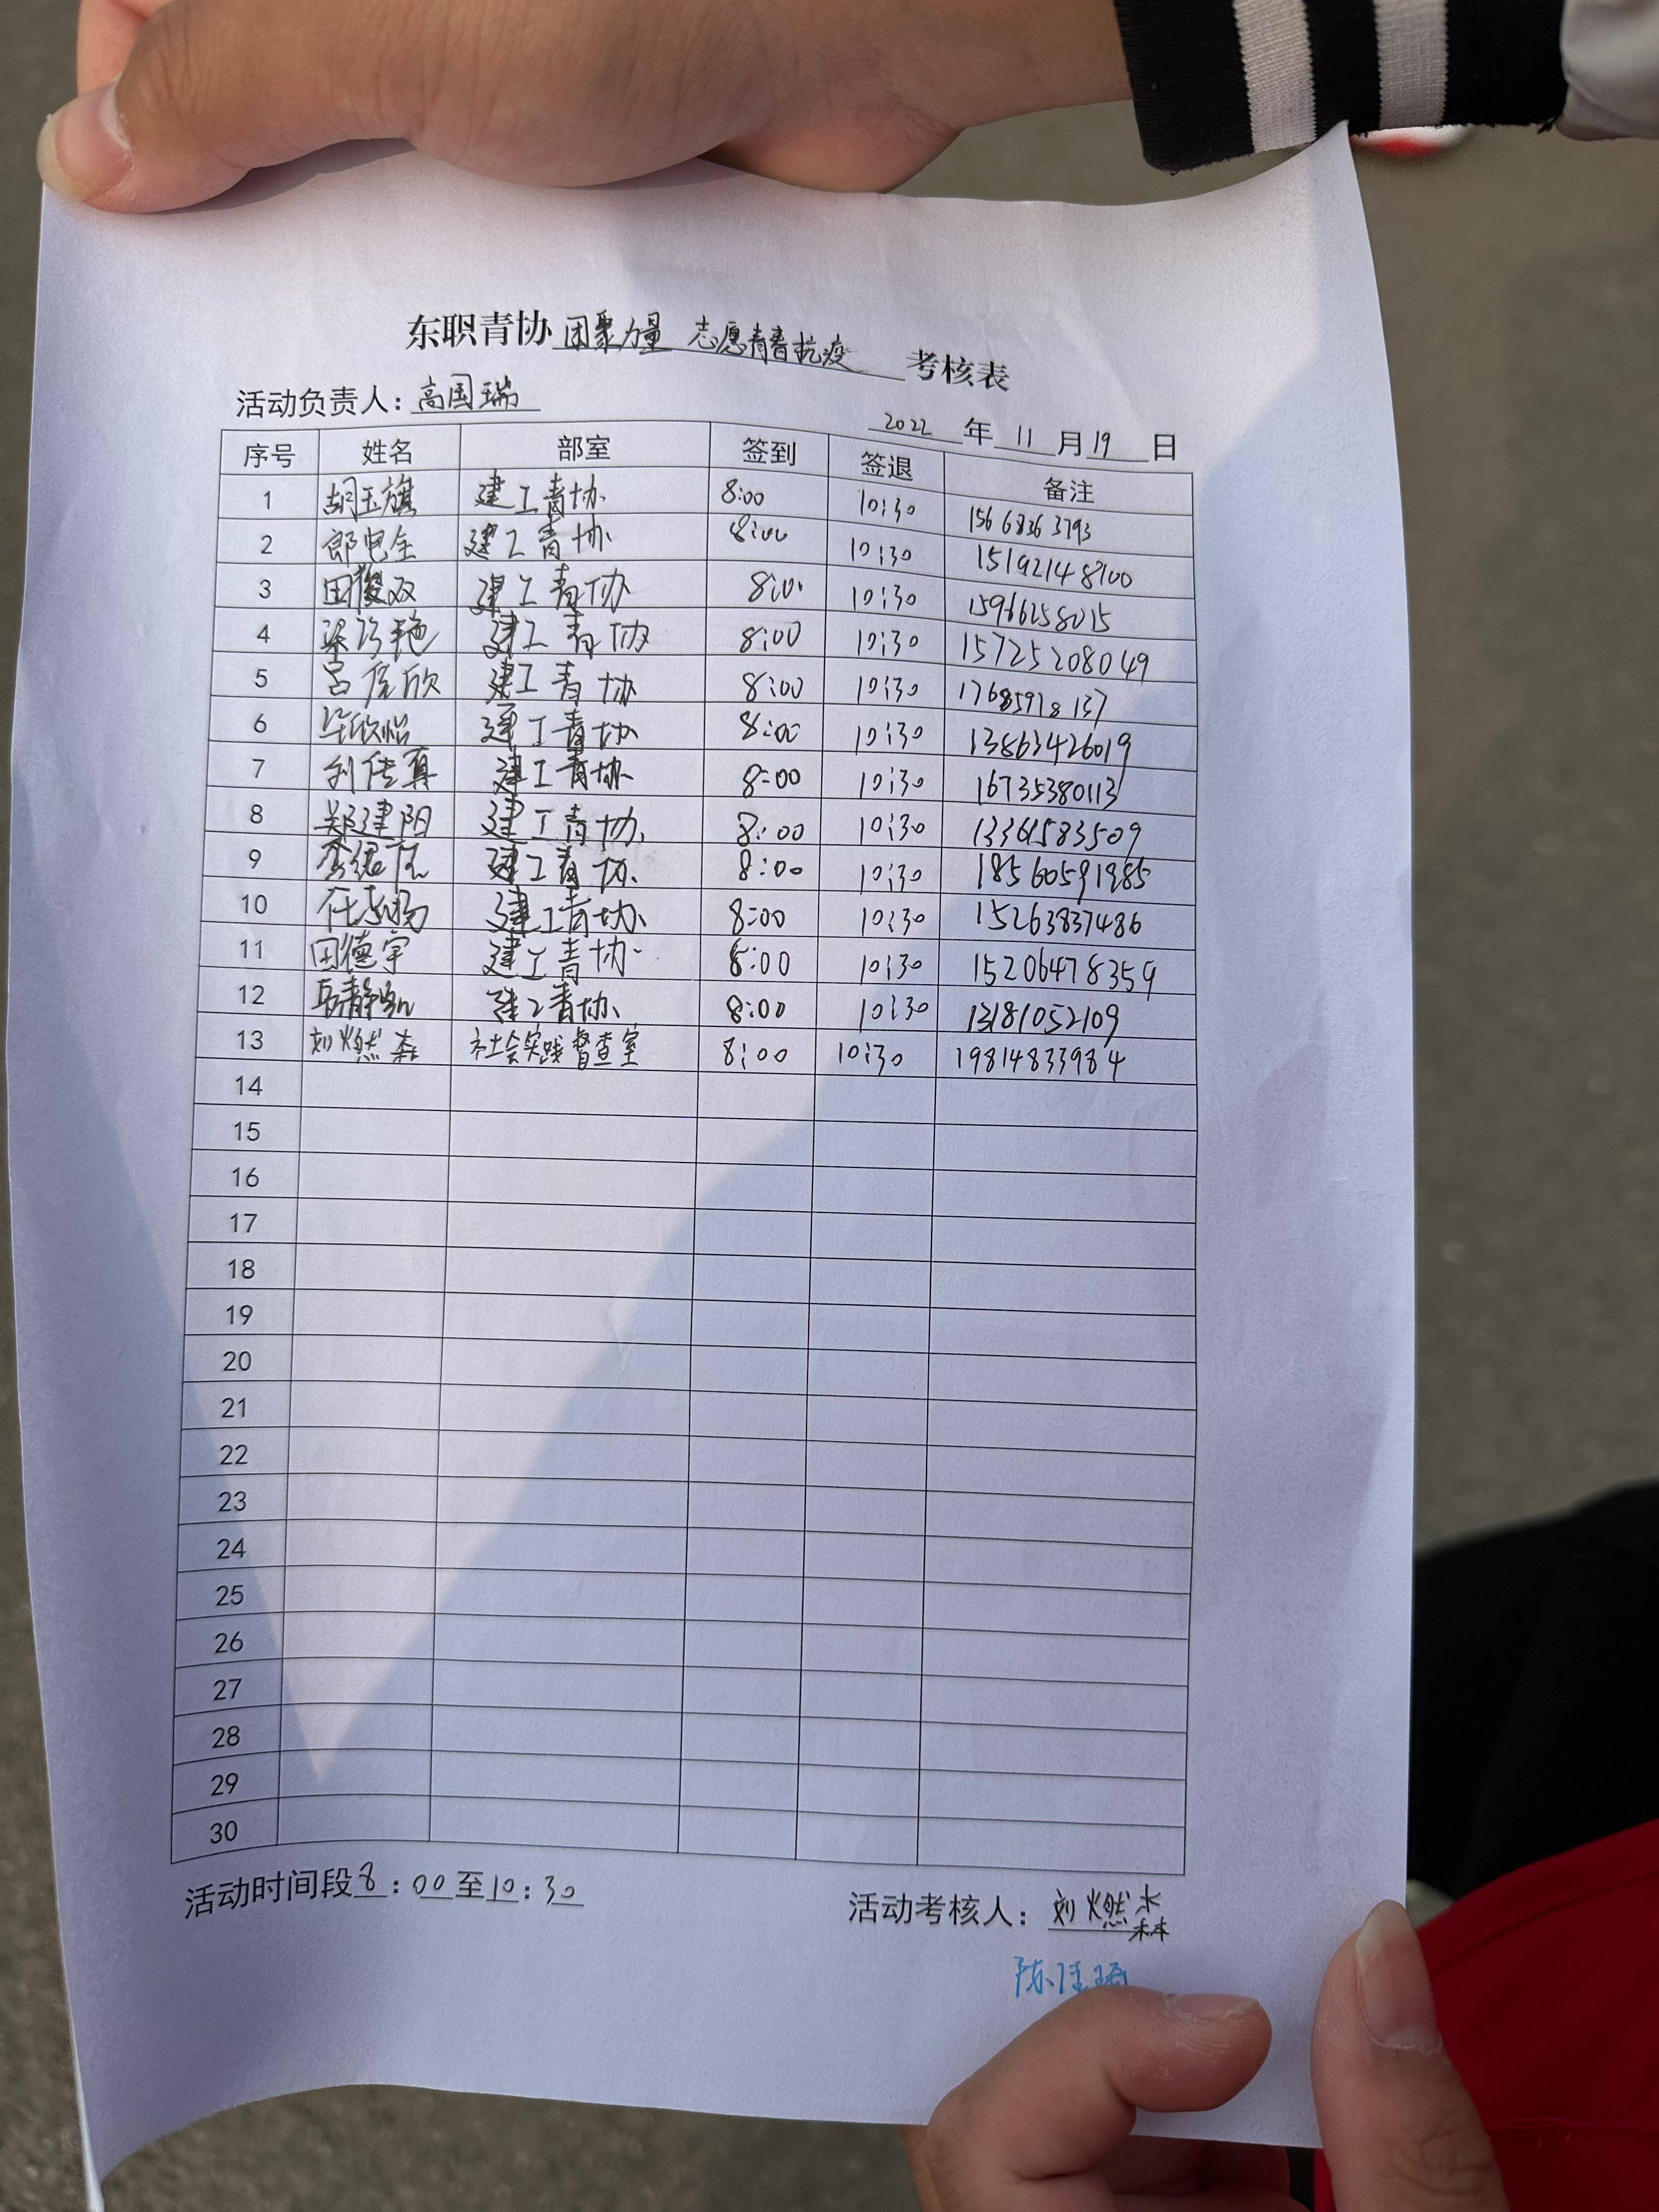 东职青协 团聚力量 志愿青春抗疫 考核表
活动负责人：高国瑞
2022 年 11 月 19 日
序号 姓名 部室 签到 签退 备注
1 胡玉旗 建工青协 8:00 10:30 156 6836 3793
2 建工青协 8:00 10:30 15192148700
3 建工青协 8:00 10:30 15966258015
4 建工青协 8:00 10:30 15725208049
5 建工青协 8:00 10:30
6 毕欣怡 建工青协 8:00 10:30 13863426019
7 建工青协 8:00 10:30 16735380113
8 郑建阳 建工青协 8:00 10:30 13361583509
9 建工青协 8:00 10:30
10 建工青协 8:00 10:30 15263837486
11 田德宇 建工青协 8:00 10:30 15206478359
12 建工青协 8:00 10:30 13181052109
13 刘燃森 社会实践督查室 8:00 10:30 19814833984
14
15
16
17
18
19
20
21
22
23
24
25
26
27
28
29
30
活动时间段 8:00 至 10:30
活动考核人：刘燃森